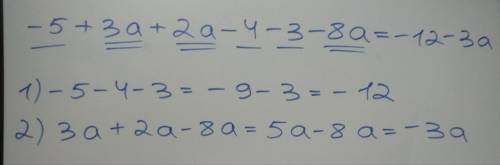 -5 + 3a + 2a - 4 - 3 - 8a = -12 - 3a
1) -5 - 4 - 3 = -9 - 3 = -12
2) 3a + 2a - 8a = 5a - 8a = -3a